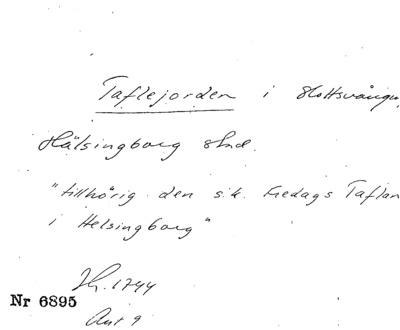 Taflejorden i Slottsvången,
Hälsingborg
"tillhörig den s.k. Fredags Taflan
i Helsingborg"
1744
Nr 6895
Akt 9